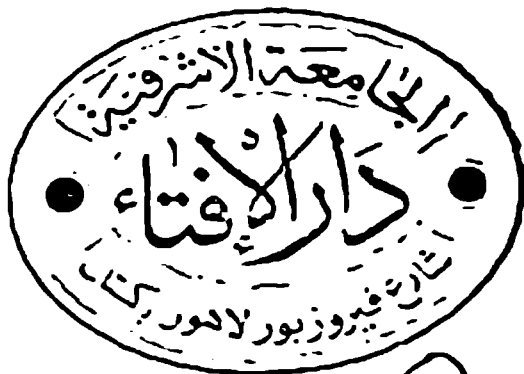 الجامعة الاشرفية
دار الإفتاء
شارع فيروز بور لاهور باكستان